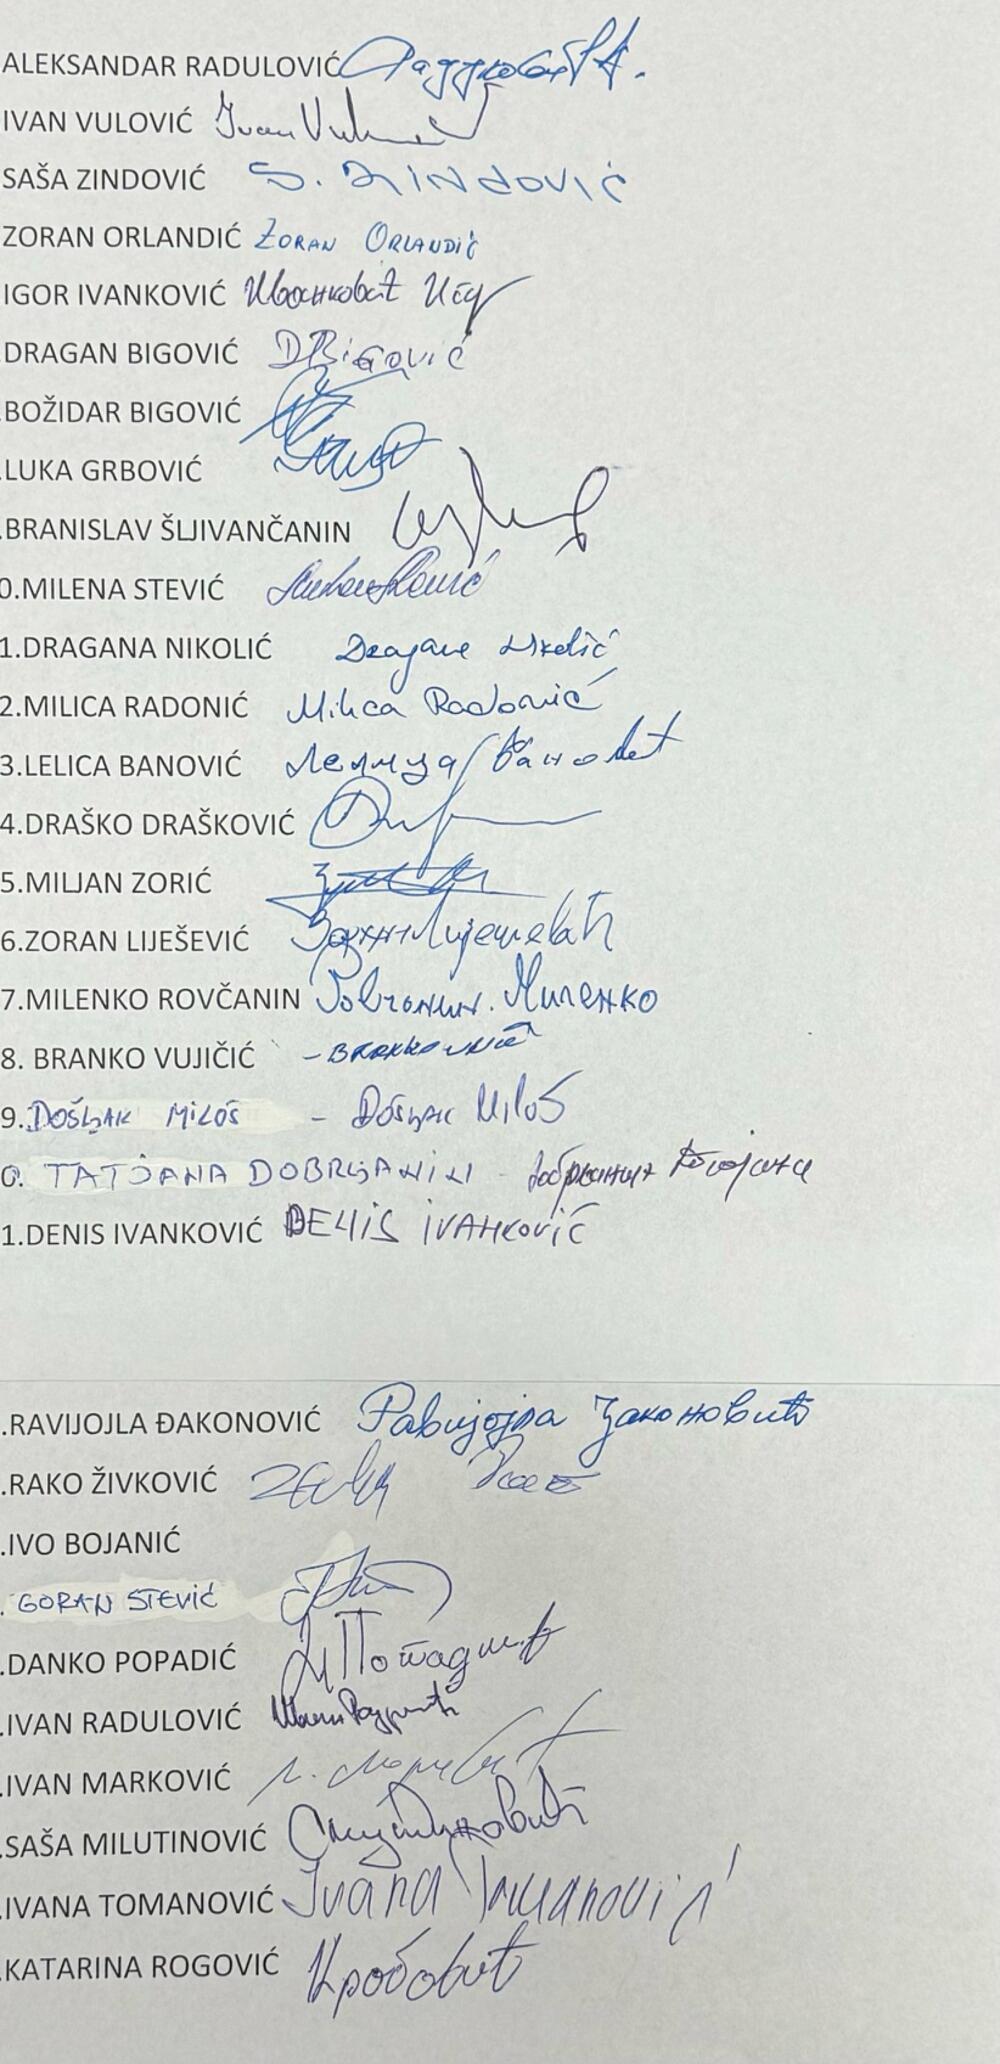 ALEKSANDAR RADULOVIĆ
IVAN VULOVIĆ Ivan
SAŠA ZINDOVIĆ S. ZINDOVIĆ
ZORAN ORLANDIĆ ZORAN ORLANDIĆ
IGOR IVANKOVIĆ Иванковић
.DRAGAN BIGOVIĆ DBIGOVIĆ
.BOŽIDAR BIGOVIĆ
.LUKA GRBOVIĆ
.BRANISLAV ŠLJIVANČANIN
0.MILENA STEVIĆ
1.DRAGANA NIKOLIĆ Dragana Nikolić
2.MILICA RADONIĆ Milica Radonić
3.LELICA BANOVIĆ Лелица Бановић
4.DRAŠKO DRAŠKOVIĆ
5.MILJAN ZORIĆ
6.ZORAN LIJEŠEVIĆ Зоран Лијешевић
7.MILENKO ROVČANIN Ровчанин. Миленко
8. BRANKO VUJIČIĆ
9. DOŠLJAK MILOŠ - DOŠLJAK MILOŠ
0. TATJANA DOBRLJANIN - Добрљанин Татјана
1.DENIS IVANKOVIĆ DENIS IVANKOVIĆ
.RAVIJOJLA ĐAKONOVIĆ Равијојла Ђаконовић
.RAKO ŽIVKOVIĆ
.IVO BOJANIĆ
. GORAN STEVIĆ
.DANKO POPADIĆ Д Попадић
.IVAN RADULOVIĆ
.IVAN MARKOVIĆ
.SAŠA MILUTINOVIĆ
.IVANA TOMANOVIĆ Ivana Tomanović
.KATARINA ROGOVIĆ